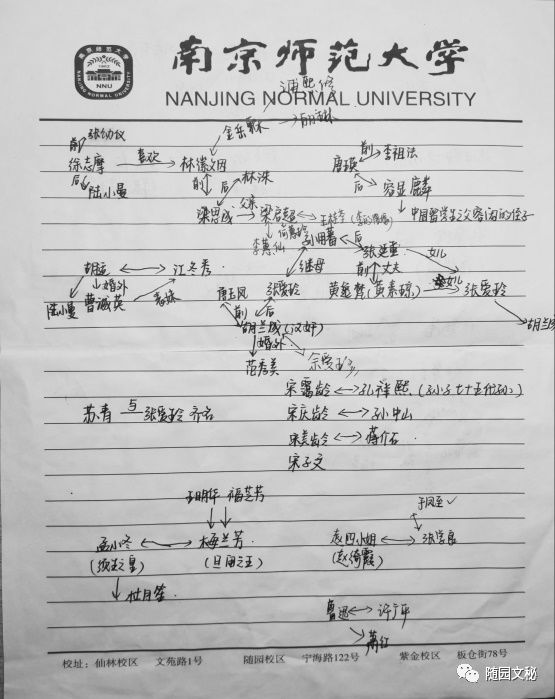 南京师范大学
NANJING NORMAL UNIVERSITY
南京师范大学
1902
NNU
NANJING NORMAL UNIVERSITY
浦熙修
金岳霖
张幼仪
前
徐志摩 喜欢 林徽因
后
陆小曼
前 后
林洙
唐瑛 前 李祖法
后
容显麟
中国留学生之父容闳的侄子
梁思成 父亲 梁启超
李蕙仙
何蕙珍
孙用蕃 后 张廷重 女儿
继母 前 丈夫
胡适 江冬秀
婚外
陆小曼 曹诚英 表妹
唐玉凤 张爱玲
前 后
黄逸梵(黄素琼) 女儿 张爱玲
胡兰成(汉奸)
胡兰成
婚外
范秀美
佘爱珍
宋霭龄 孔祥熙(孔子七十五代孙)
苏青 与 张爱玲 齐名
宋庆龄 孙中山
宋美龄 蒋介石
宋子文
王明华 福芝芳
于凤至
孟小冬 梅兰芳
(须生之皇) (旦角之王)
赵四小姐 张学良
(赵绮霞)
杜月笙
鲁迅 许广平
萧红
校址:仙林校区 文苑路1号 随园校区 宁海路122号 紫金校区 板仓街78号
随园文秘